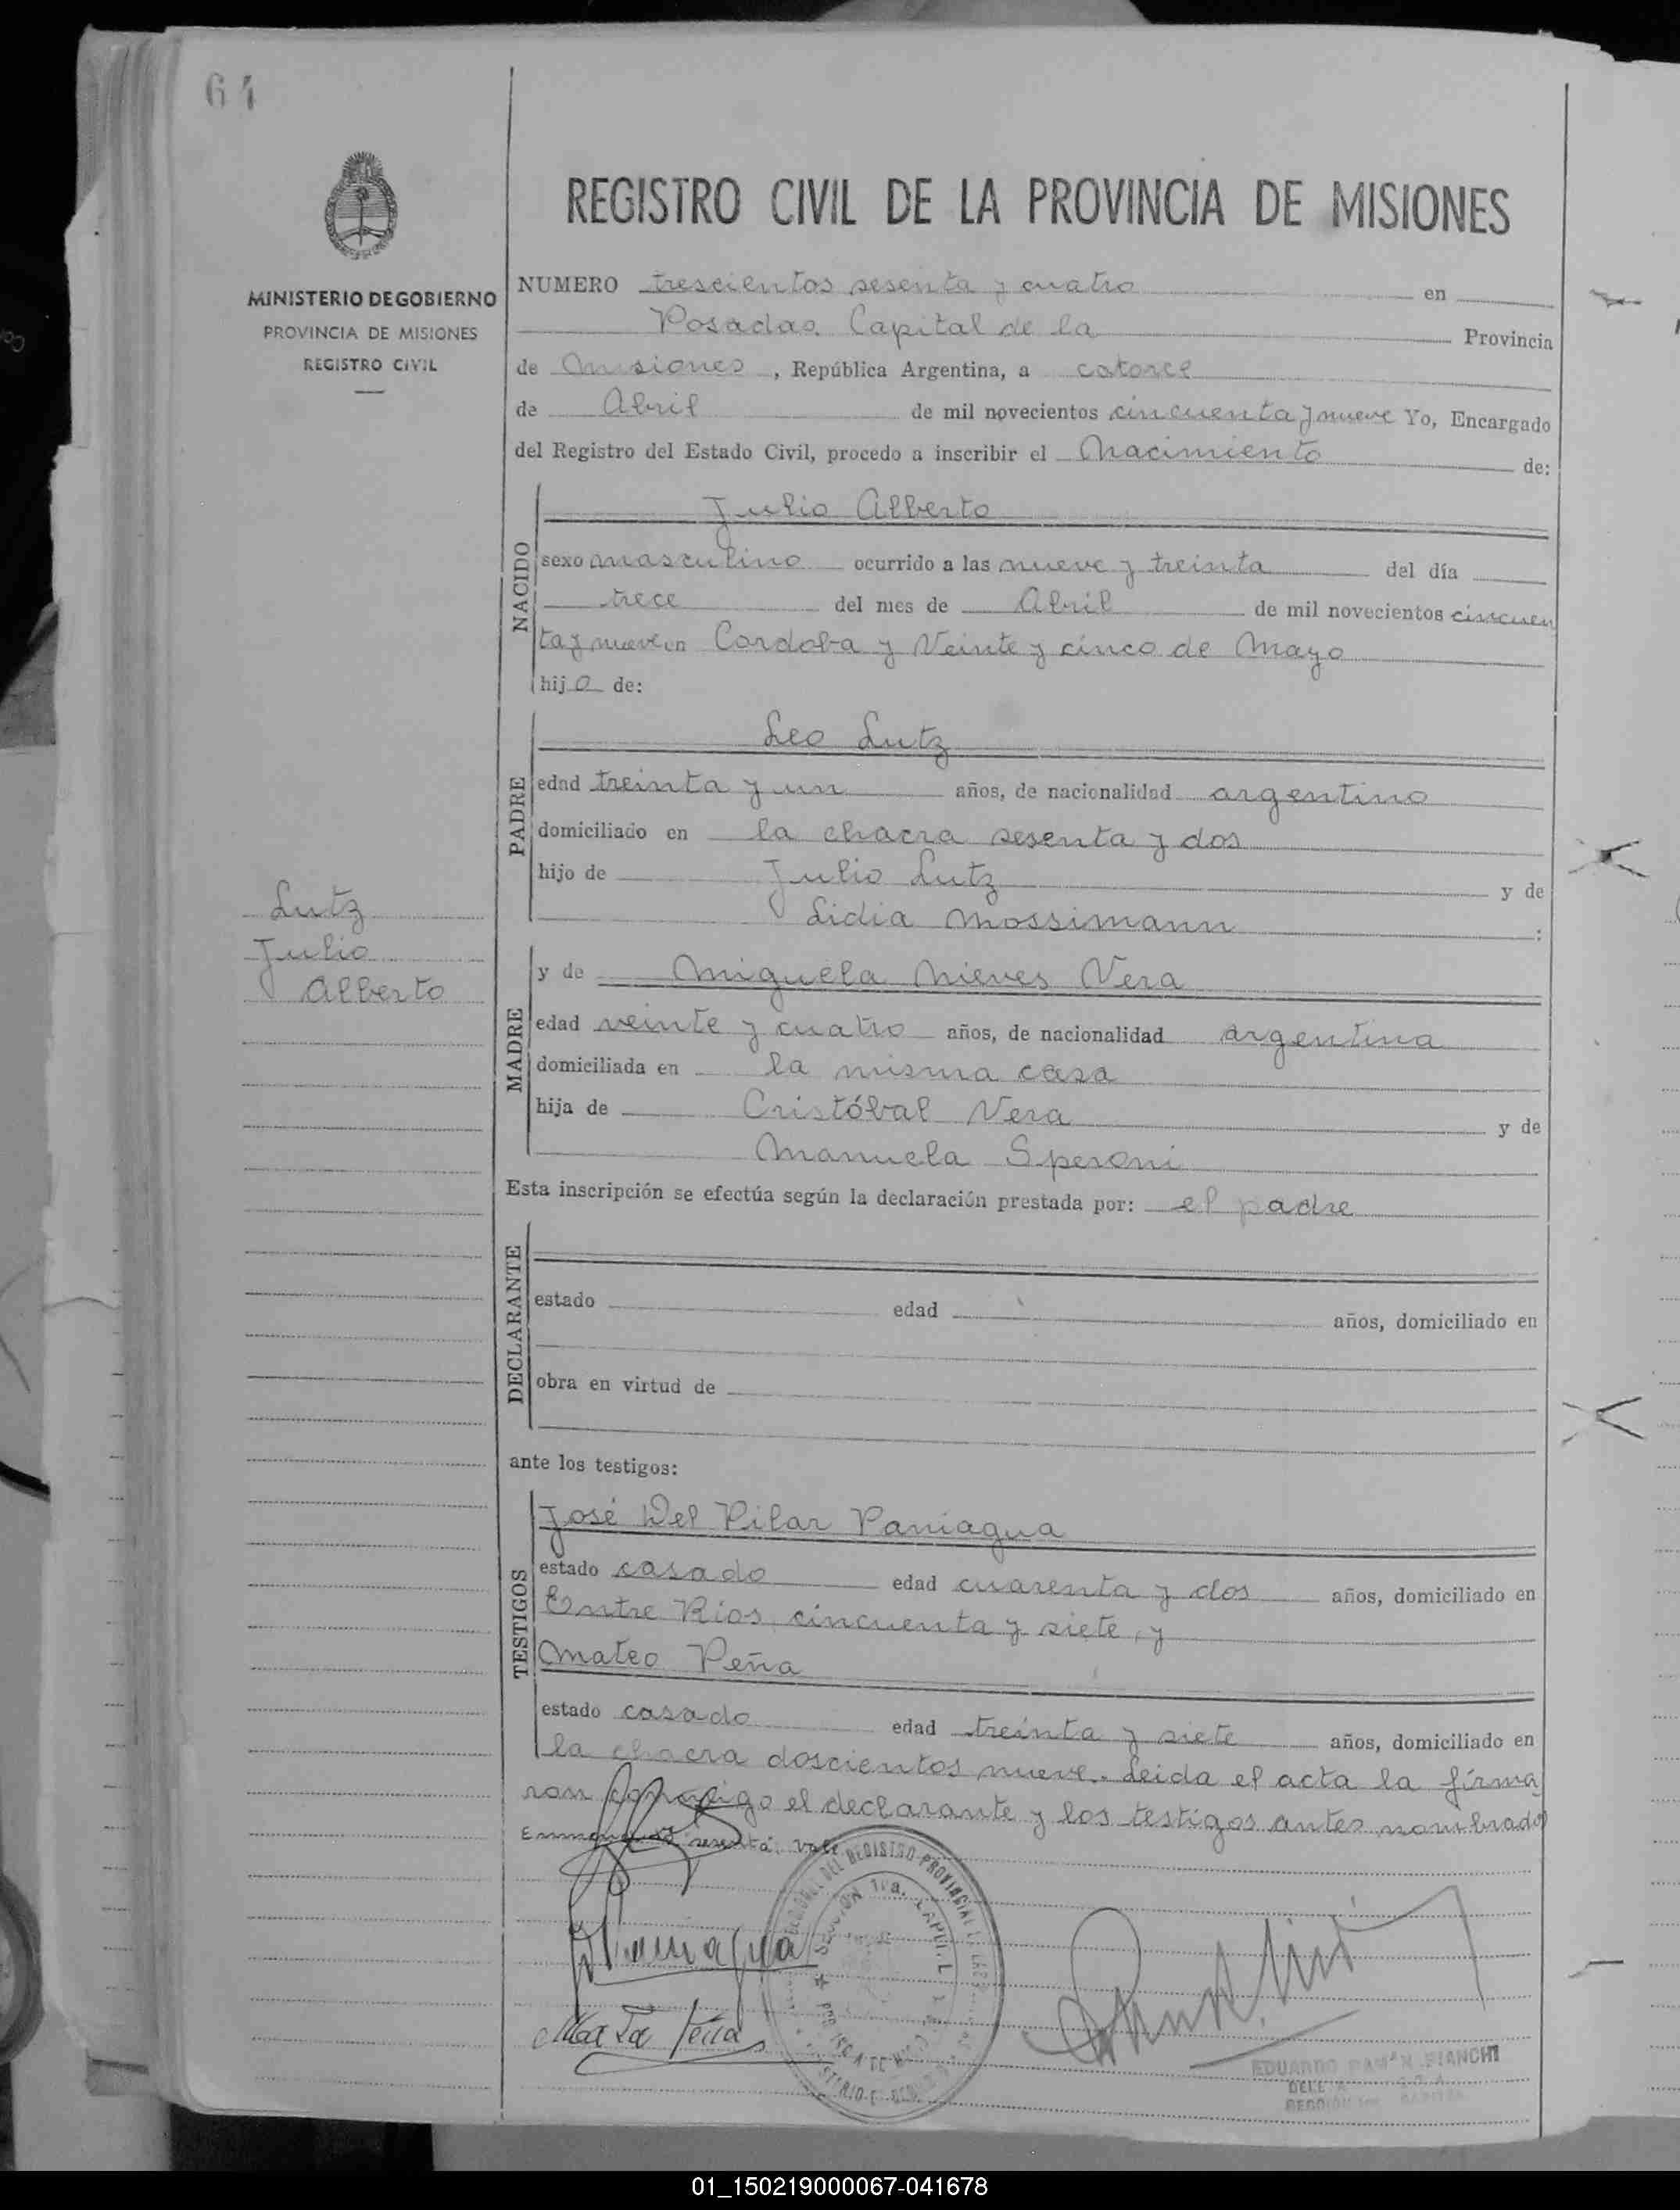 64
MINISTERIO DE GOBIERNO
PROVINCIA DE MISIONES
REGISTRO CIVIL
REGISTRO CIVIL DE LA PROVINCIA DE MISIONES
NUMERO trescientos sesenta y cuatro en
Posadas. Capital de la Provincia
de Misiones, República Argentina, a catorce
de Abril de mil novecientos cincuenta y nueve Yo, Encargado
del Registro del Estado Civil, procedo a inscribir el Nacimiento de:
NACIDO
Julio Alberto
sexo masculino ocurrido a las nueve y treinta del día
trece del mes de Abril de mil novecientos cincuen
ta y nueve en Cordoba y Veinte y cinco de Mayo
hijo de:
PADRE
Leo Lutz
edad treinta y un años, de nacionalidad argentino
domiciliado en la chacra sesenta y dos
hijo de Julio Lutz y de
Lidia Mossimann :
Lutz
Julio
Alberto
MADRE
y de Miguela Nieves Vera
edad veinte y cuatro años, de nacionalidad argentina
domiciliada en la misma casa
hija de Cristóbal Vera y de
Manuela Speroni
Esta inscripción se efectúa según la declaración prestada por: el padre
DECLARANTE
estado edad años, domiciliado en
obra en virtud de
ante los testigos:
TESTIGOS
José Del Pilar Paniagua
estado casado edad cuarenta y dos años, domiciliado en
Entre Rios cincuenta y siete, y
Mateo Peña
estado casado edad treinta y siete años, domiciliado en
la chacra doscientos nueve. Leida el acta la firma
ron conmigo el declarante y los testigos antes nombrados
sesenta: vale
EDUARDO RAMÓN BIANCHI
01_150219000067-041678